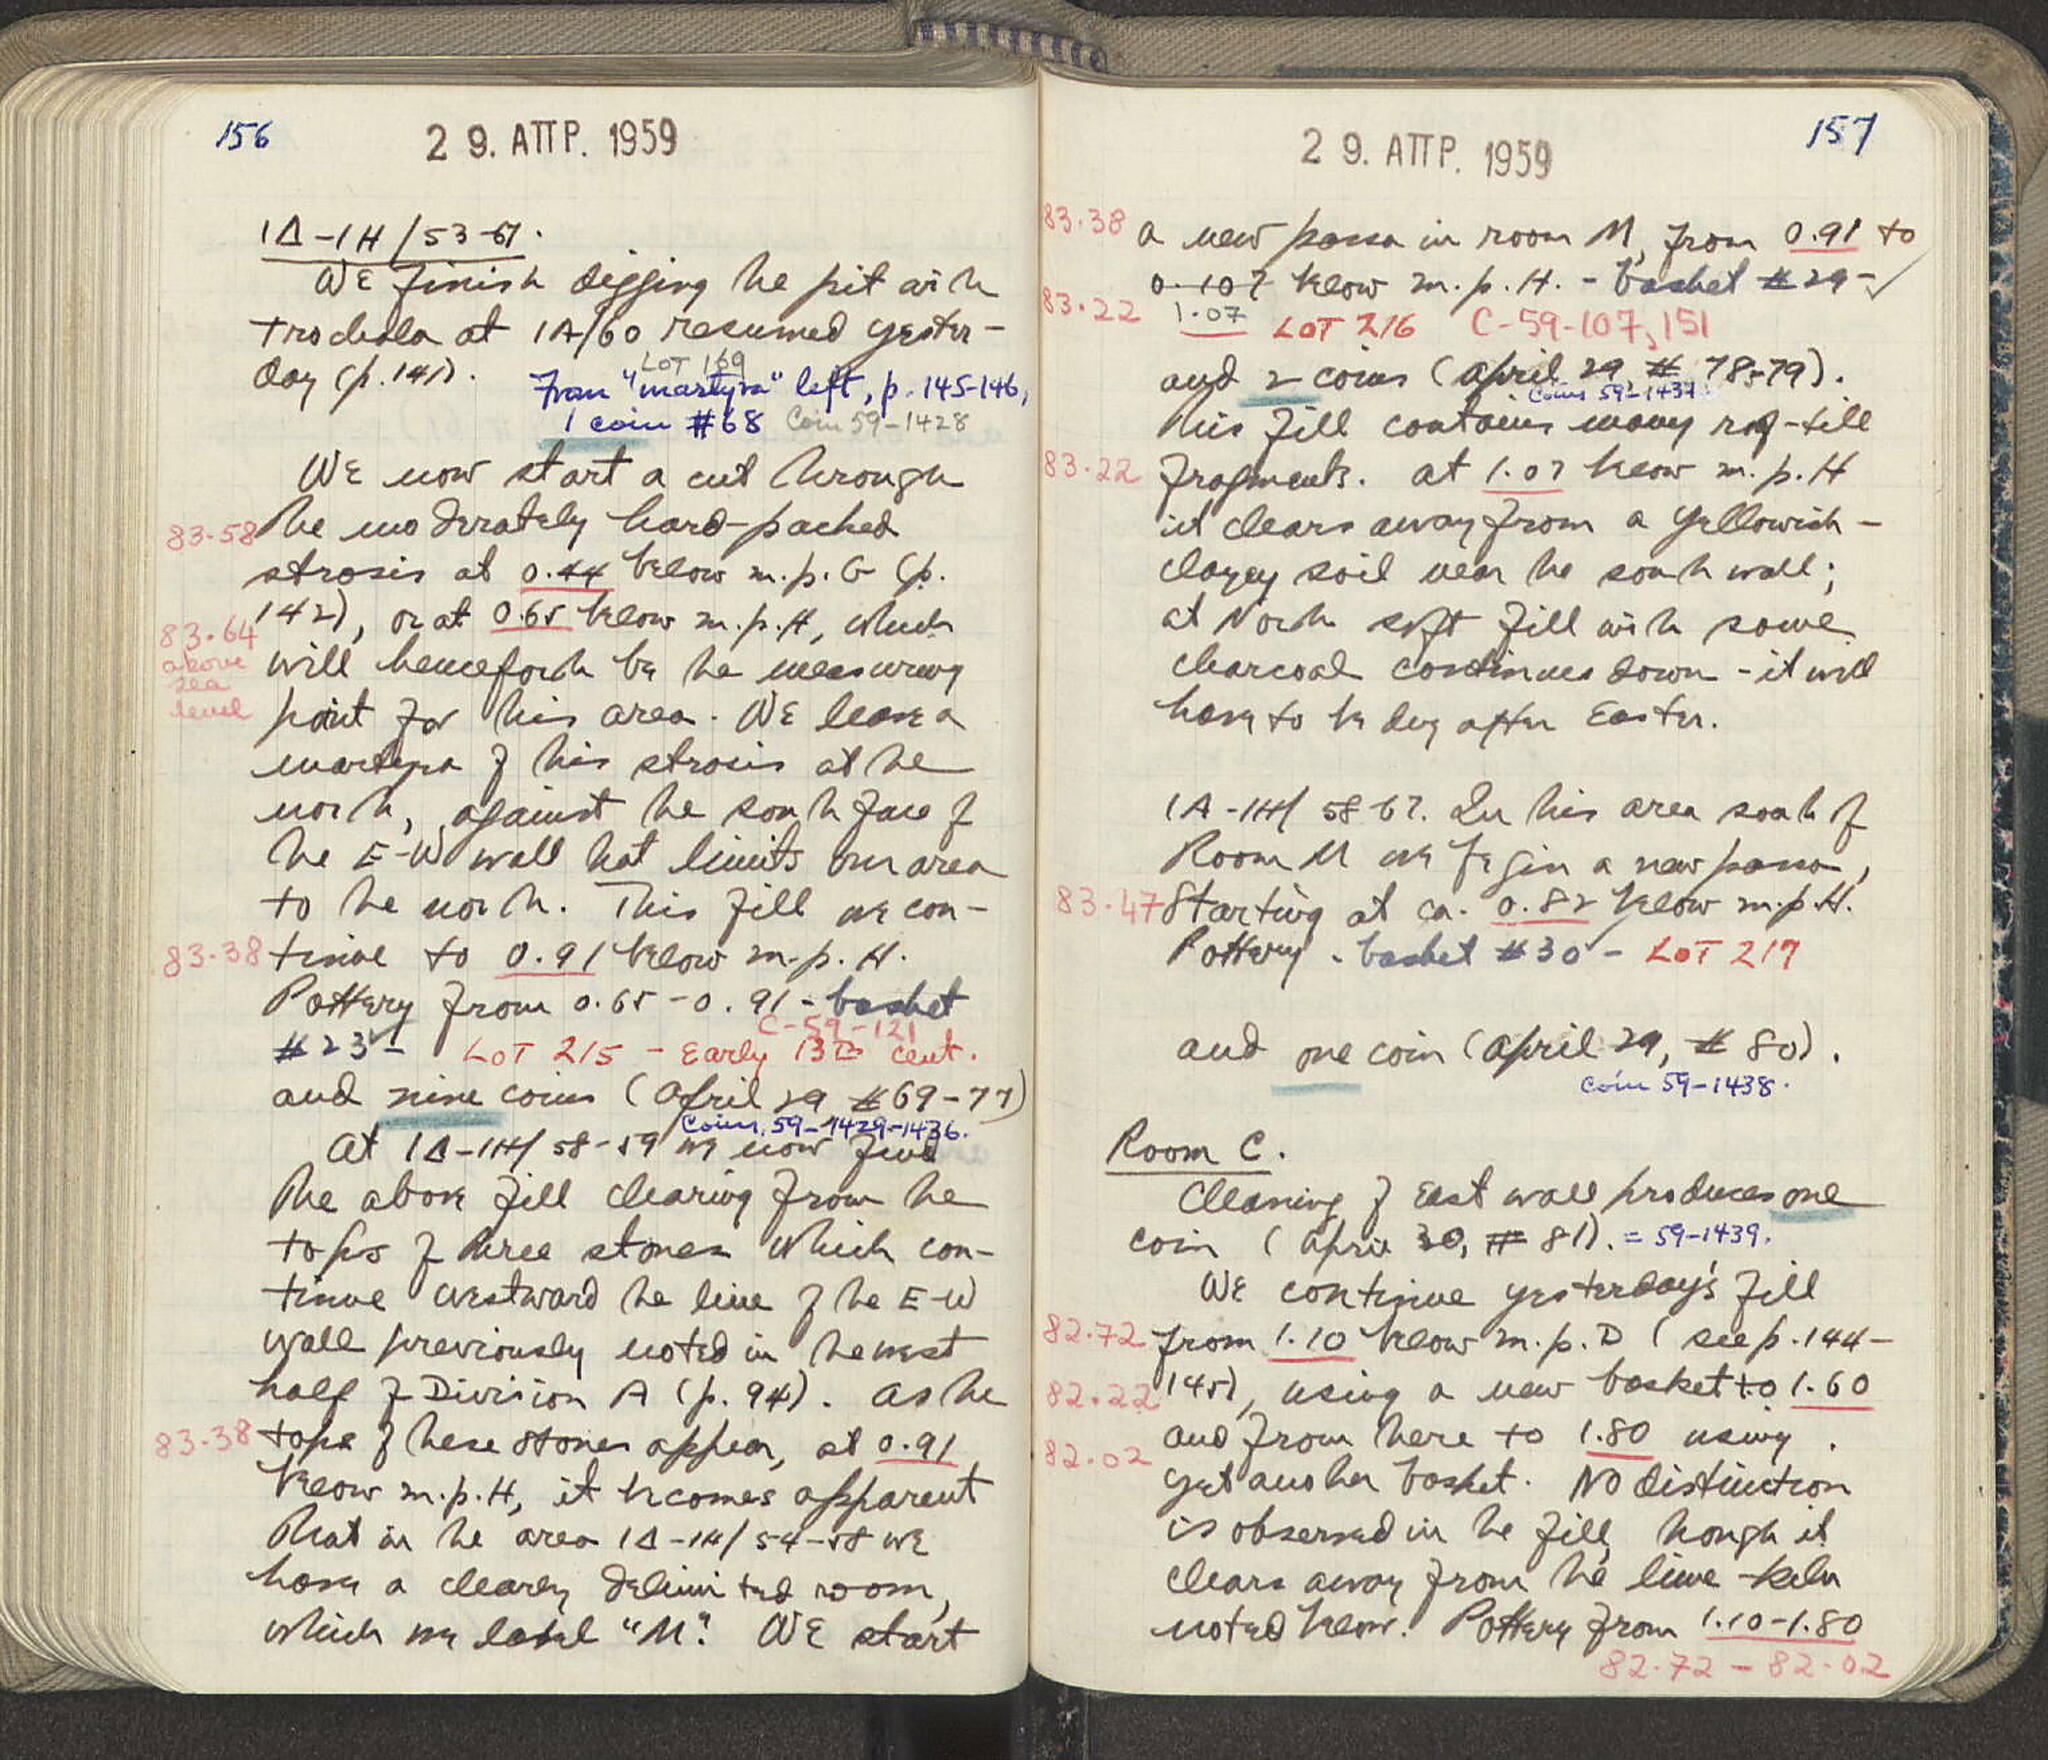 156
29. ΑΠΡ. 1959
ΙΔ-ΙΗ/53-61.
We finish digging the pit with
trochala at ΙΑ/60 resumed yester-
day (p. 141).
LOT 169
From "martyra" left, p. 145-146,
1 coin #68 Coin 59-1428
We now start a cut through
83.58 the moderately hard-packed
strosis at 0.44 below m.p. G (p.
142), or at 0.65 below m.p. H, which
83.64 above sea level
will henceforth be the measuring
point for this area. We leave a
martyra of this strosis at the
north, against the south face of
the E-W wall that limits our area
to the north. This fill we con-
83.38 tinue to 0.91 below m.p. H.
Pottery from 0.65-0.91 - basket
C-59-121
#23 - LOT 215 - Early 13th cent.
and nine coins (April 29 #69-77)
Coins 59-1429-1436.
At ΙΔ-ΙΗ/58-59 we now find
the above fill clearing from the
tops of three stones which con-
tinue westward the line of the E-W
wall previously noted in the west
half of Division A (p. 94). As the
83.38 tops of these stones appear, at 0.91
below m.p. H, it becomes apparent
that in the area ΙΔ-ΙΗ/54-58 we
have a clearly delimited room,
which we label "M". We start
157
29. ΑΠΡ. 1959
83.38 a new passa in room M, from 0.91 to
0.107 below m.p. H. - basket #29 -
83.22 1.07 LOT 216 C-59-107, 151
and 2 coins (April 29 # 78-79).
Coins 59-1437
This fill contains many roof-tile
83.22 fragments. At 1.07 below m.p. H
it clears away from a yellowish-
clayey soil near the south wall;
at North soft fill with some
charcoal continues down - it will
have to be dug after Easter.
ΙΑ-ΙΗ/58-67. In this area south of
Room M we begin a new passa,
83.47 starting at ca. 0.82 below m.p. H.
Pottery - basket #30 - LOT 217
and one coin (April 29, # 80).
Coin 59-1438.
Room C.
Cleaning of East wall produces one
coin (April 30, # 81). = 59-1439.
We continue yesterday's fill
82.72 from 1.10 below m.p. D (see p. 144-
82.22 145), using a new basket to 1.60
and from here to 1.80 using
82.02 yet another basket. No distinction
is observed in the fill, though it
clears away from the lime-kiln
noted below. Pottery from 1.10-1.80
82.72 - 82.02